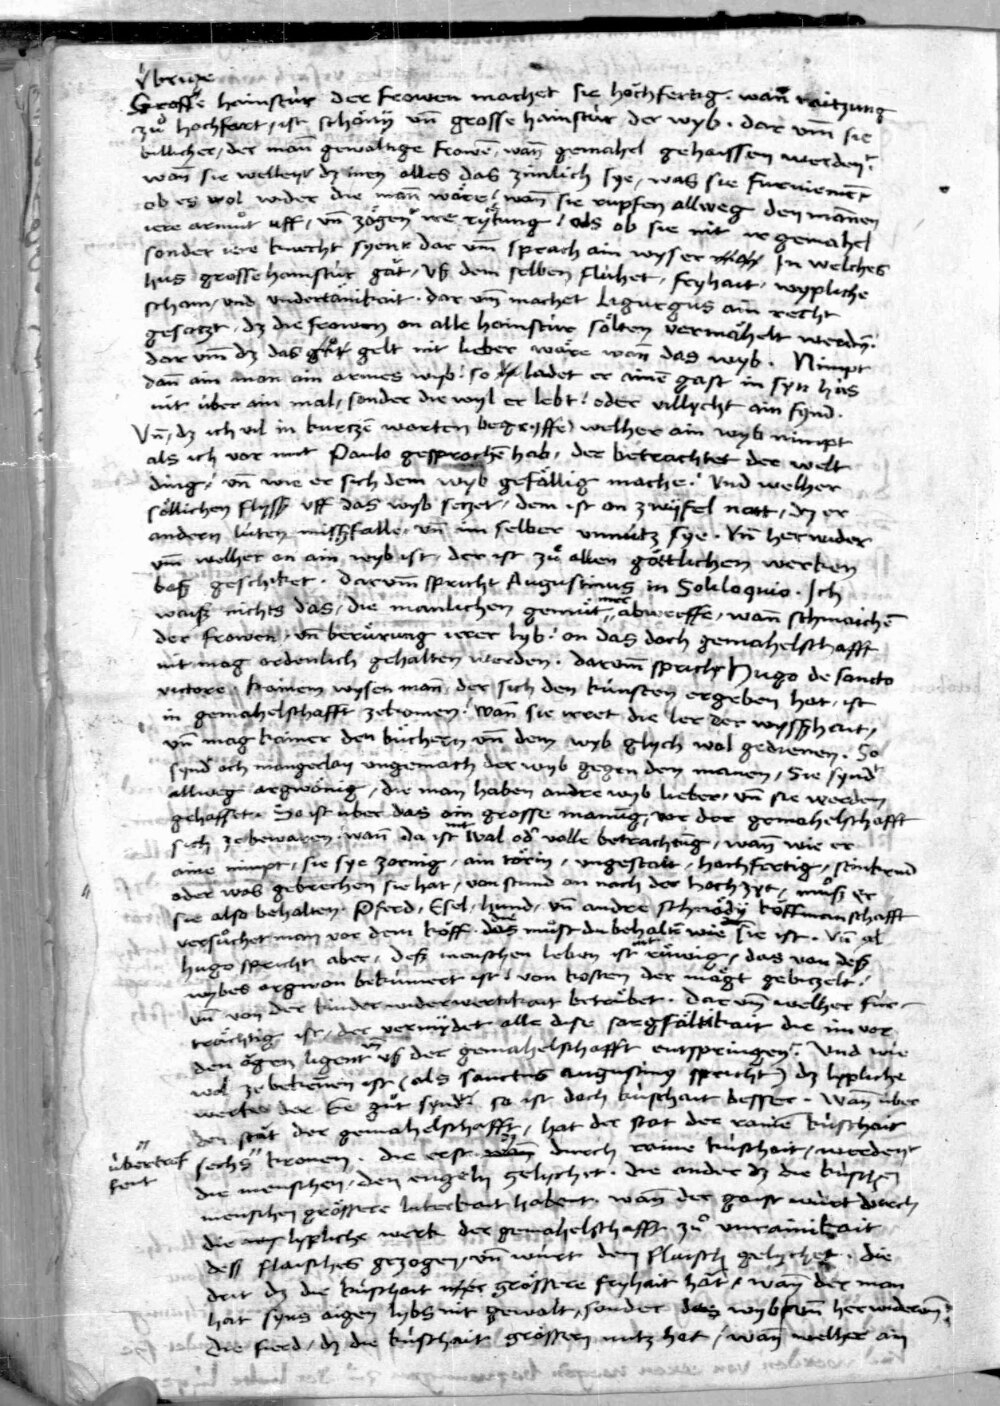 Übrige
Grosse heinstür der frowen machet sie hochfertig. wañ raitzung
zů hochfart, ist schöny vñ grosse hainstür, der wyb. dar vm̃ sie
billicher, der mañ gewaltige frowẽ, wañ gemahel gehaissen werden.
wañ sie wellent dz inen alles das zimlich sye, was sie fürnement
ob es wol wider die mañ wäre. wañ sie rupfen allweg den mannen
iere armůt uff, vñ zögen ire rÿchtung, als ob sie nit ir gemahel
sonder iere knecht syent dar vm̃ sprach ain wyser In welches
hus grosse hainstür gät, vß dem selben flühet, fryhait, wypliche
scham, und vndertänikait. dar vm̃ machet Ligurgus ain recht
gesatzt, dz die frowen on alle hainstür sölten vermähelt werdñ.
dar vm̃ dz das gelt nit lieber wäre wañ das wyb. Nimpt
dañ ain man ain armes wyb, so ladet er ainẽ gast in syn hus
nit über ain mal, sonder die wyl er lebt, oder villycht ain fynd.
Vñ, dz ich vil in kurtzẽ worten begryffe, welher ain wyb nimpt
als ich vor mit Paulo gesprochẽ hab, der betrachtet der welt
ding, vñ wie er sich dem wyb gefällig mache. Und welher
söllichen flyß uff das wyb setzet, dem ist on zwyfel nott, dz er
andern lüten mißfalle, vñ im selber unnütz sye. Vñ herwider
vm̃ welher on ain wyb ist, der ist zů allen göttlichen werken
baß geschiket. Darum̃ spricht Augustinus in Soliloquio. Ich
waiß nichts das, die manlichen gemüt mer abwerffe, wañ schmaichẽ
der frowen, vñ berürung irer lyb, on das doch gemahelschafft
nit mag ordenlich gehalten werden. darum̃ spricht Hugo de sancto
victore, kainem wysen mañ, der sich den künsten ergeben hat, ist
in gemahelschafft zekomen, wañ sie irret die ler der wyßhait,
vñ mag kainer den büchern vñ dem wyb glych wol gedienen. So
synd och mangerlay ungemach der wyb gegen den mannen, Sie synd
allweg argwönig, die man haben andre wyb lieber, vñ sie werden
gehasset. So ist über das ain grosse manung, vor der gemahelschafft
sich zebewaren, wañ da ist nit wal od̃ volle betrachtũg, wañ wie er
aine nimpt, sie sye zornig, ain törin, ungestalt, hochfertig, stinkend
oder was gebrechen sie hat, von stund an nach der hochzyt, můß er
sie also behalten. Pferd, Esel, hund, vñ andre schnödy köffmanschafft
versůchet man vor dem köff. die můst du behaltñ wie sie ist. Vñ al
hugo spricht aber, deß menschen leben ist nit rüwig, das von deß
wybes argwon bekümert ist, von kosten der mägt gebizelt,
vñ von der kinder widerwertikait betrübet. Dar vm̃ welher für-
trächtig ist, der vermydet alle dise sorgfältikait die im vor
den ögen ligent vñ vß der gemahelschafft entspringen. Und wie
wol zebekenen ist (als sanctus augustinus spricht) dz lypliche
werke der Ee gůt synd, so ist doch küschait besser. Wañ über
den stät der gemahelschafft, hat der stat der rainẽ küschait
übertref
fent
sechs kronen. die erst durch raine küschait, werdent
die menschen, den engeln gelychet. die ander dz die küschen
menschen grössere luterkait habent, wañ der gaist würt durch
die lypliche werk der gemahelschafft zů unrainikait
deß flaisches gezogen, vñ würt dem flaisch gelychet. die
drit dz die küschait grössere fryhait hät, wañ der man
hat syns aigen lybs nit gewalt, sonder das wyb, vñ herwiderum̃
die fierd, dz die küschait grössern nutz hat, wañ welher ain